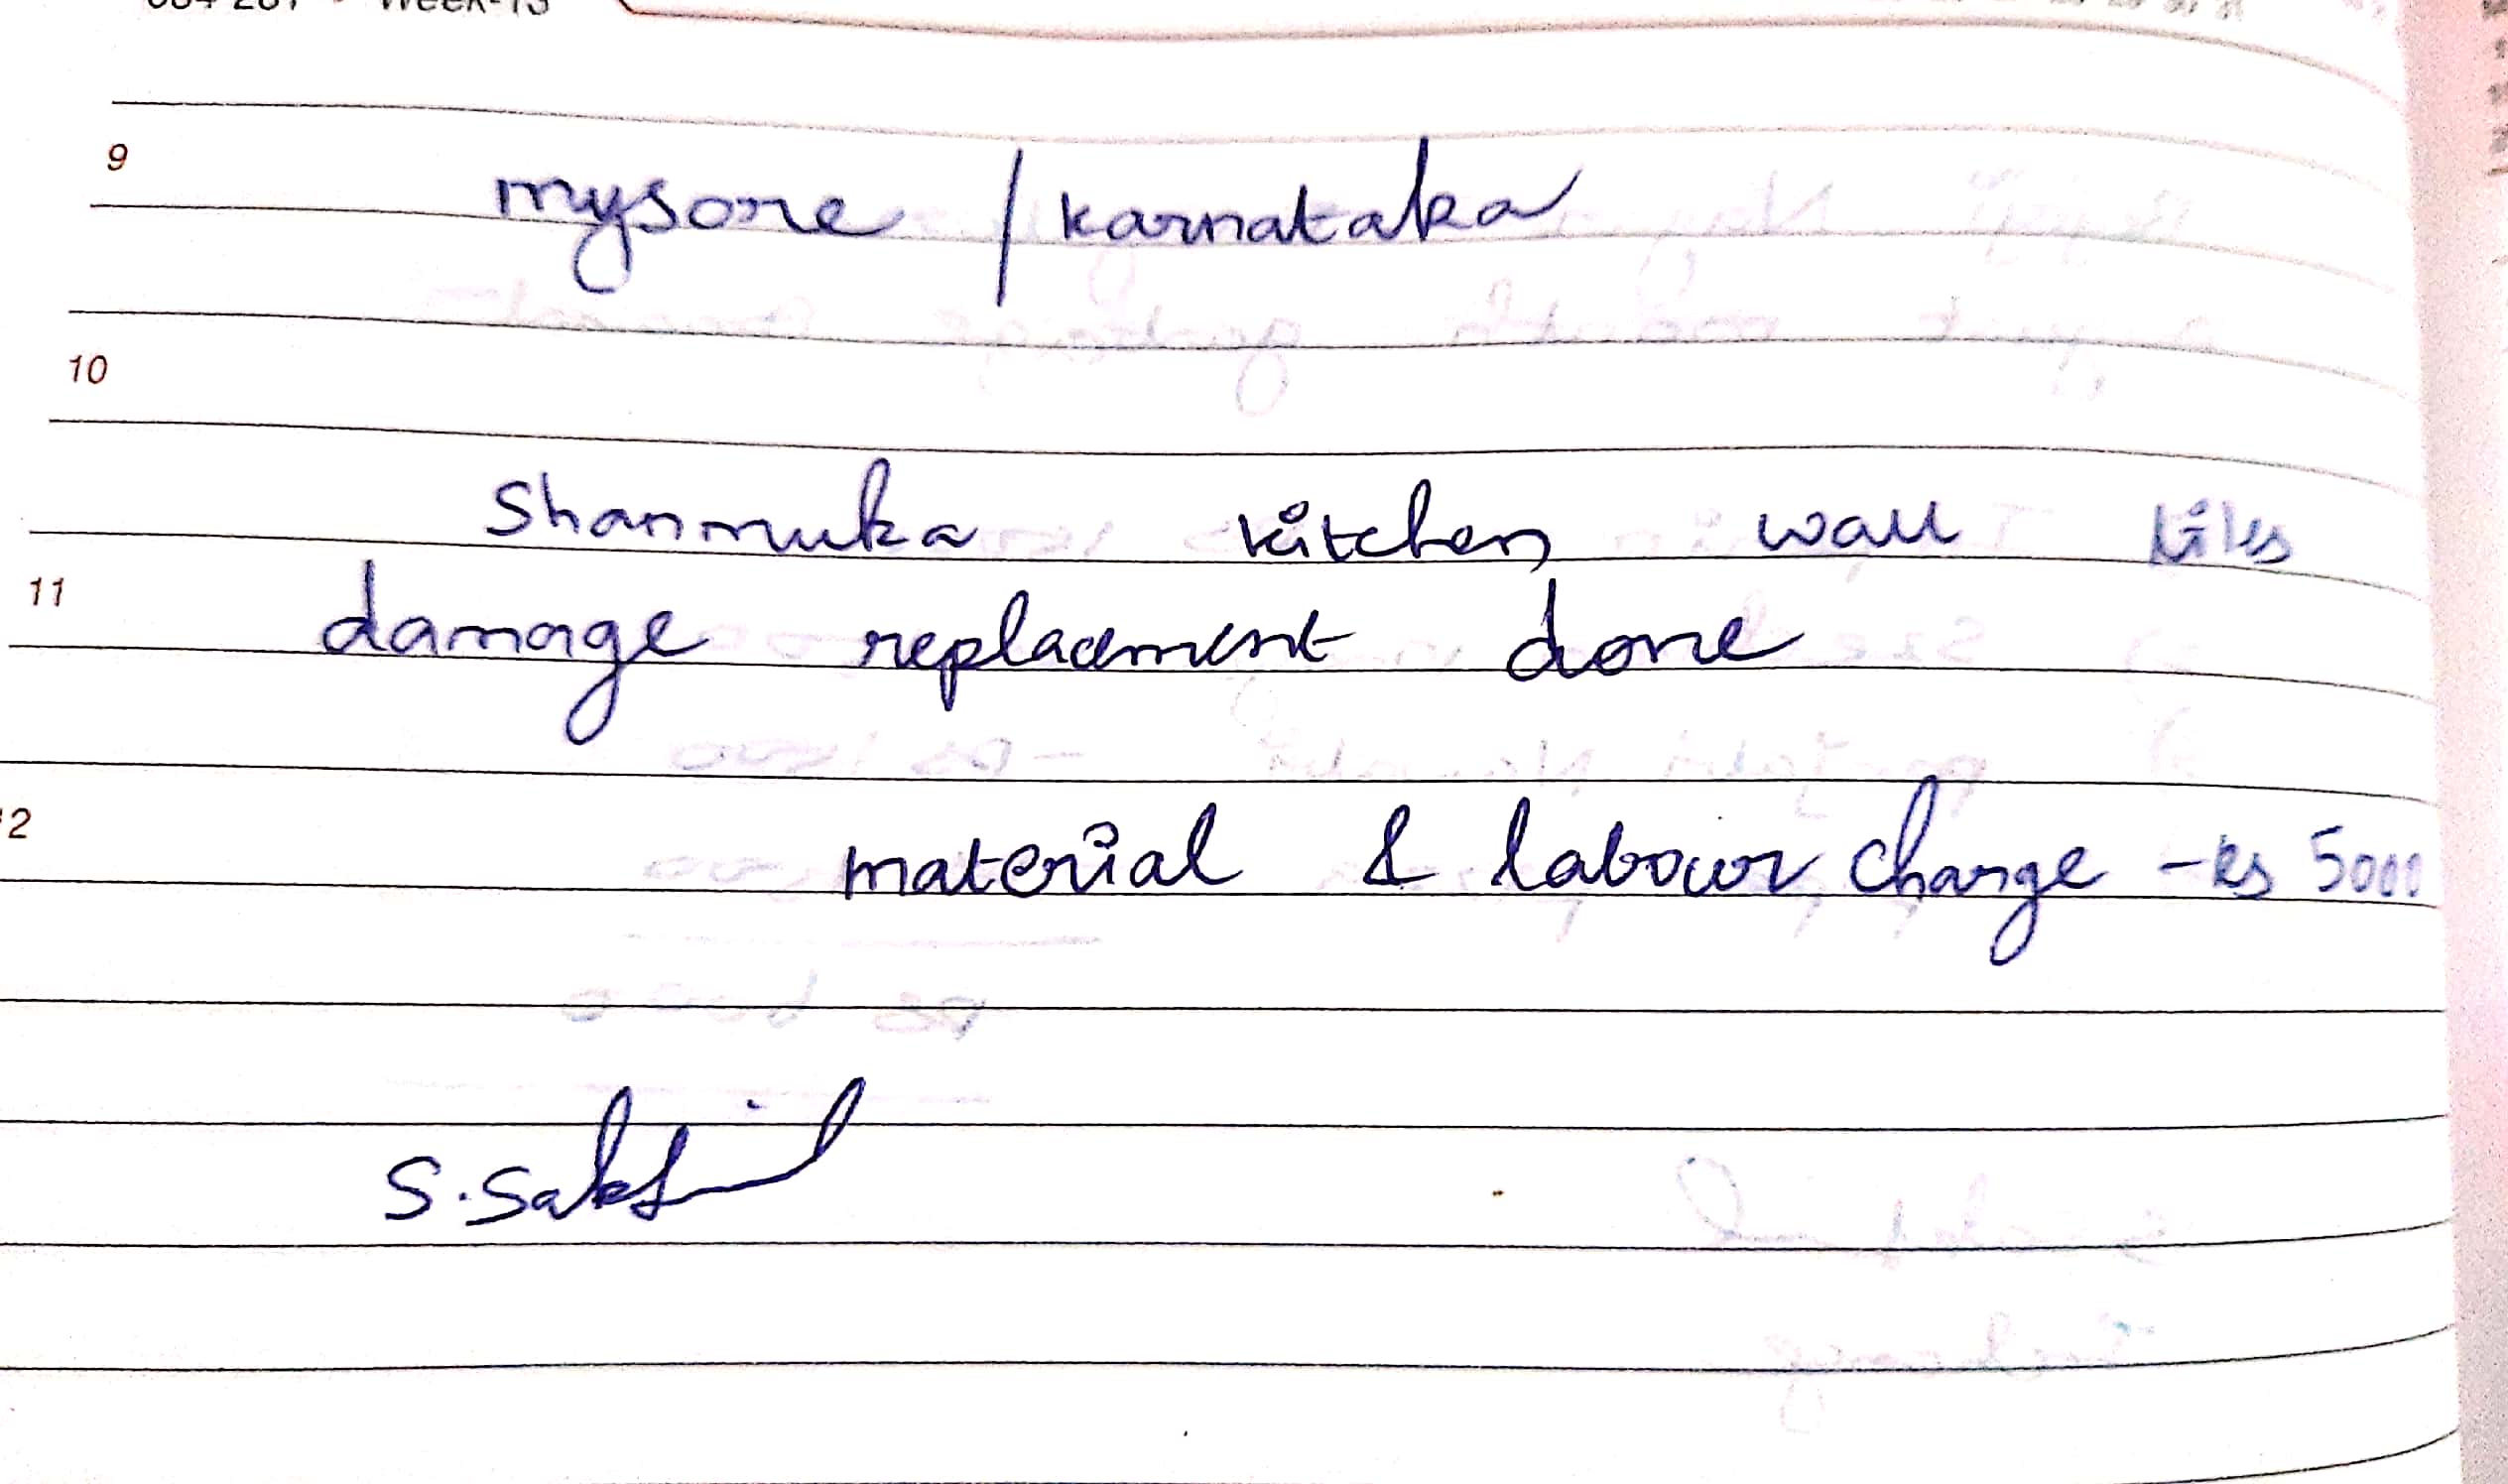 Week-13
9
mysore / karnataka
10
Shanmuka kitchen wall tiles
11
damage replacement done
material & labour charge - Rs 5000
S.